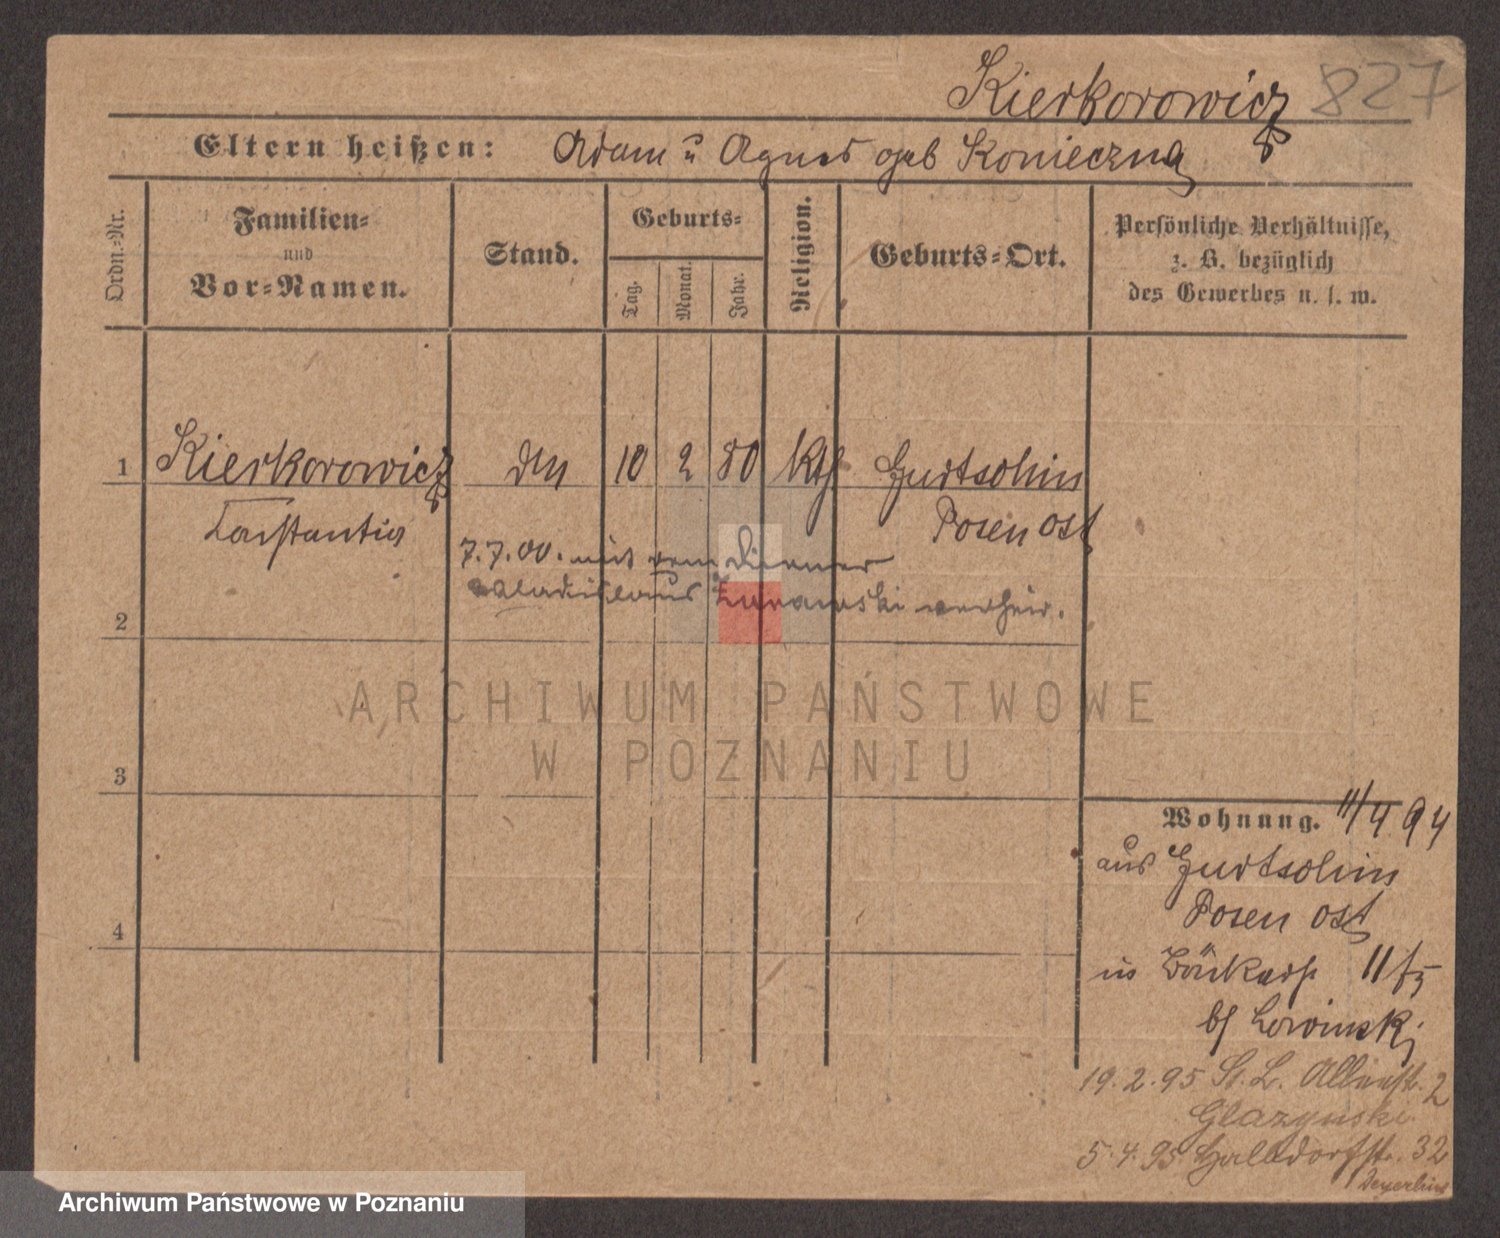 Kierkorowicz 827
Eltern heißen: Adam u Agnes geb Konieczna
Ordn.-Nr.
Familien-
und
Vor-Namen.
Stand.
Geburts-
Tag.
Monat.
Jahr.
Religion.
Geburts-Ort.
Persönliche Verhältnisse,
z. B. bezüglich
des Gewerbes u. s. w.
1 Kierkorowicz 10 2 80 Kth Gurtschin
Constantia Posen Ost
7.7.00. mit dem Diener
Wladislaus Zurawski verheir.
2
3
4
ARCHIWUM PAŃSTWOWE
W POZNANIU
Wohnung. 11/4 94
aus Gurtschin
Posen Ost
in 11/5
bei
19.2.95 St. L. 2
Glazynski
5.4.95 Halbdorfstr. 32
Archiwum Państwowe w Poznaniu